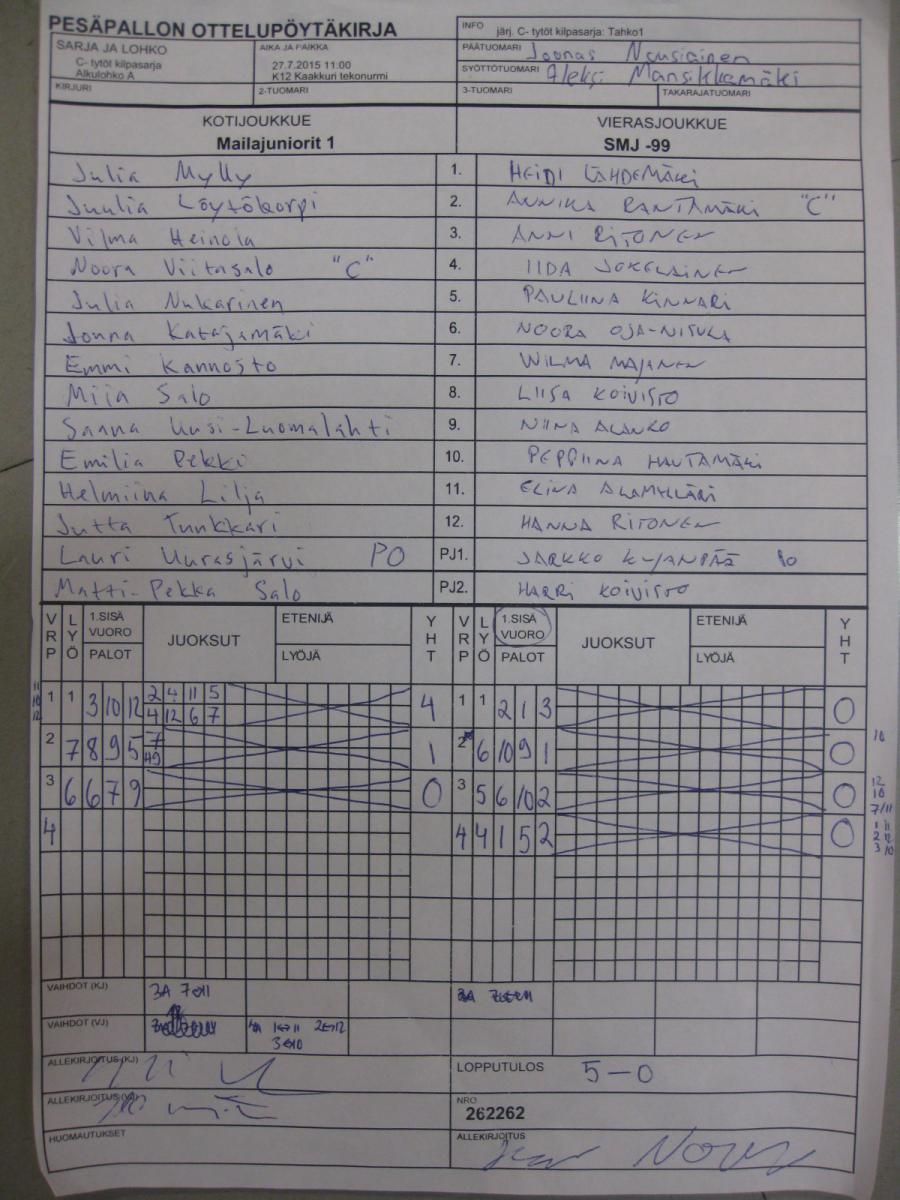 PESÄPALLON OTTELUPÖYTÄKIRJA
INFO järj. C- tytöt kilpasarja: Tahko1
SARJA JA LOHKO
C- tytöt kilpasarja
Alkulohko A
AIKA JA PAIKKA
27.7.2015 11:00
K12 Kaakkuri tekonurmi
PÄÄTUOMARI Joonas Nousiainen
SYÖTTÖTUOMARI Aleksi Mansikkamäki
KIRJURI
2-TUOMARI
3-TUOMARI
TAKARAJATUOMARI
KOTIJOUKKUE
Mailajuniorit 1
VIERASJOUKKUE
SMJ -99
Julia Mylly 1. HEIDI LÄHDEMÄKI
Juulia Löytökorpi 2. ANNIKA RANTAMÄKI "C"
Vilma Heinola 3. ANNI RITONEN
Noora Viitasalo "C" 4. IIDA JOKELAINEN
Julia Nukarinen 5. PAULIINA KINNARI
Jonna Katajamäki 6. NOORA OJA-NISULA
Emmi Kannosto 7. WILMA MAJANEN
Miia Salo 8. LIISA KOIVISTO
Sanna Uusi-Luomalahti 9. NIINA ALANKO
Emilia Pekki 10. PEPPIINA HAUTAMÄKI
Helmiina Lilja 11. ELINA ALAMYLLÄRI
Jutta Tunkkari 12. HANNA RITONEN
Lauri Uurasjärvi PO PJ1. JARKKO KUJANPÄÄ
Matti-Pekka Salo PJ2. HARRI KOIVISTO
VRP LYÖ 1.SISÄ VUORO PALOT JUOKSUT ETENIJÄ LYÖJÄ YHT
VRP LYÖ 1.SISÄ VUORO PALOT JUOKSUT ETENIJÄ LYÖJÄ YHT
11 10 12
1 1 3 10 12 2 4 11 5 4 1 1 2 1 3 0
4 12 6 7
2 7 8 9 5 7 1 2 6 10 9 1 0 10
3 6 6 7 9 0 3 5 6 10 2 0 12 10 7/11
4 4 4 1 5 2 0 1 11
2 12
3 10
VAIHDOT (KJ) 3A
VAIHDOT (VJ) 4A 1↔11 2↔12
3↔10
ALLEKIRJOITUS (KJ)
LOPPUTULOS 5-0
ALLEKIRJOITUS (VJ)
NRO
262262
HUOMAUTUKSET
ALLEKIRJOITUS